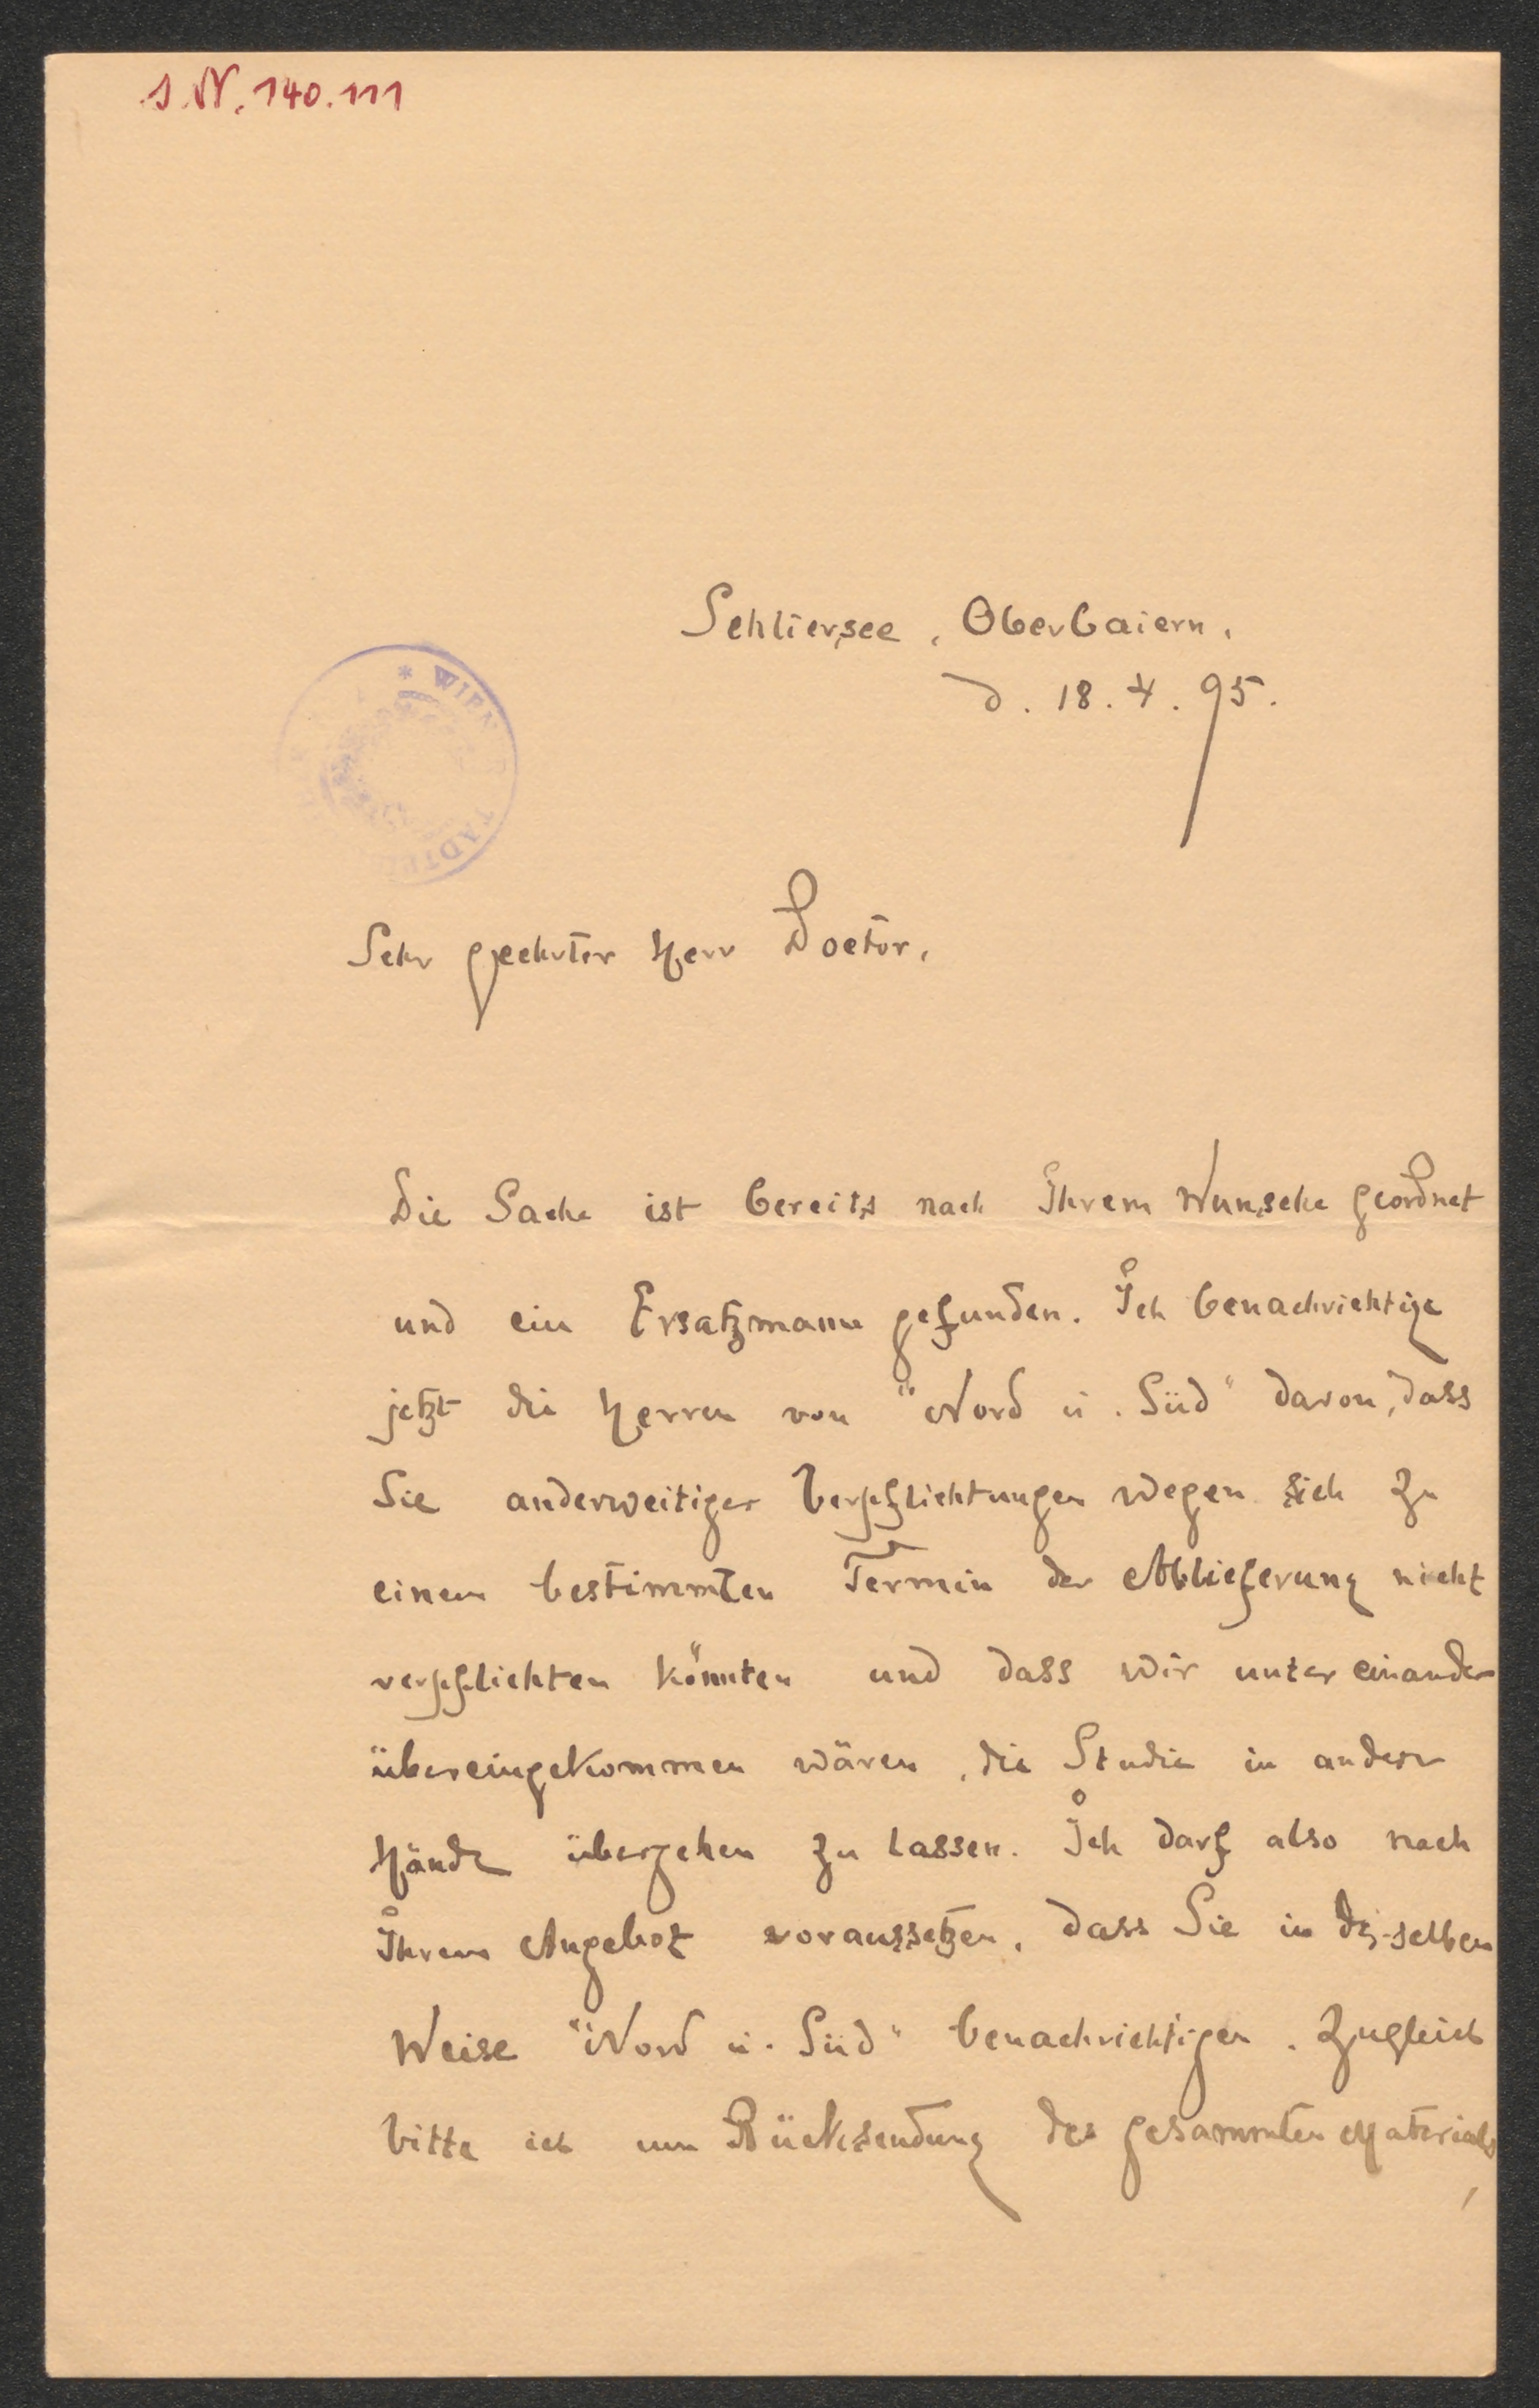 J.N. 140.111
Schliersee, Oberbaiern.
d. 18. 4. 95.
* WIEN
Sehr geehrter Herr Doctor,
Die Sache ist bereits nach Ihrem Wunsche geordnet
und ein Ersatzmann gefunden. Ich benachrichtige
jetzt die Herren von "Nord u. Süd" davon, dass
Sie anderweitiger Verpflichtungen wegen sich zu
einem bestimmten Termin der Ablieferung nicht
verpflichten könnten und dass wir unter einander
übereingekommen wären, die Studie in andere
Hände übergehen zu lassen. Ich darf also nach
Ihrem Angebot voraussetzen, dass Sie in derselben
Weise "Nord u. Süd" benachrichtigen. Zugleich
bitte ich um Rücksendung des gesammten Materials,